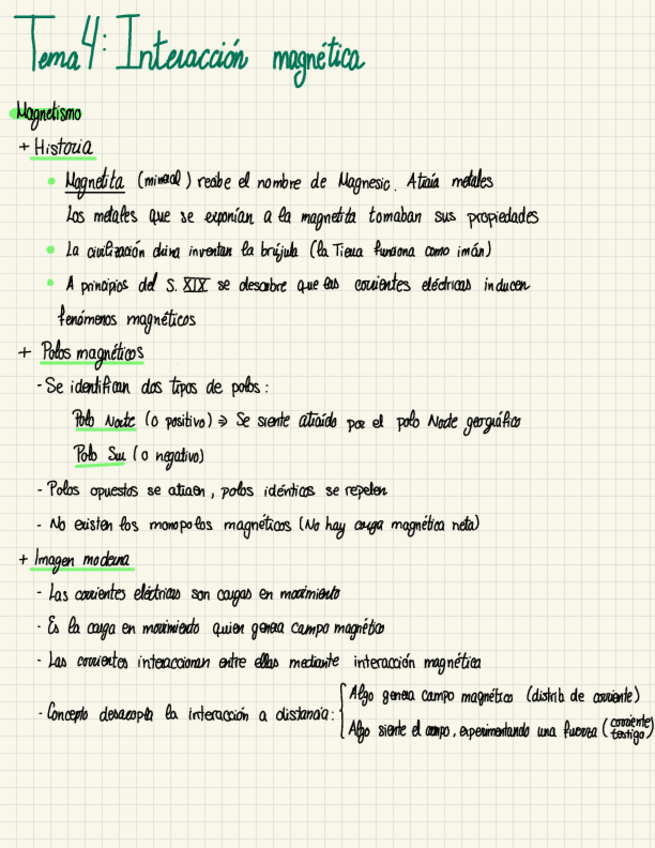 Tema 4: Interacción magnética
Magnetismo
+ Historia
• Magnetita (mineral) recibe el nombre de Magnesic. Atraía metales
Los metales que se exponían a la magnetita tomaban sus propiedades
• La civilización china inventan la brújula (la Tierra funciona como imán)
• A principios del S. XIX se descubre que las corrientes eléctricas inducen
fenómenos magnéticos
+ Polos magnéticos
- Se identifican dos tipos de polos:
Polo Norte (o positivo) ⇒ Se siente atraído por el polo Norte geográfico
Polo Sur (o negativo)
- Polos opuestos se atraen, polos idénticos se repelen
- No existen los monopolos magnéticos (No hay carga magnética neta)
+ Imagen moderna
- Las corrientes eléctricas son cargas en movimiento
- Es la carga en movimiento quien genera campo magnético
- Las corrientes interaccionan entre ellas mediante interacción magnética
- Concepto desacopla la interacción a distancia: { Algo genera campo magnético (distrib de corriente)
Algo siente el campo, experimentando una fuerza (corriente testigo)